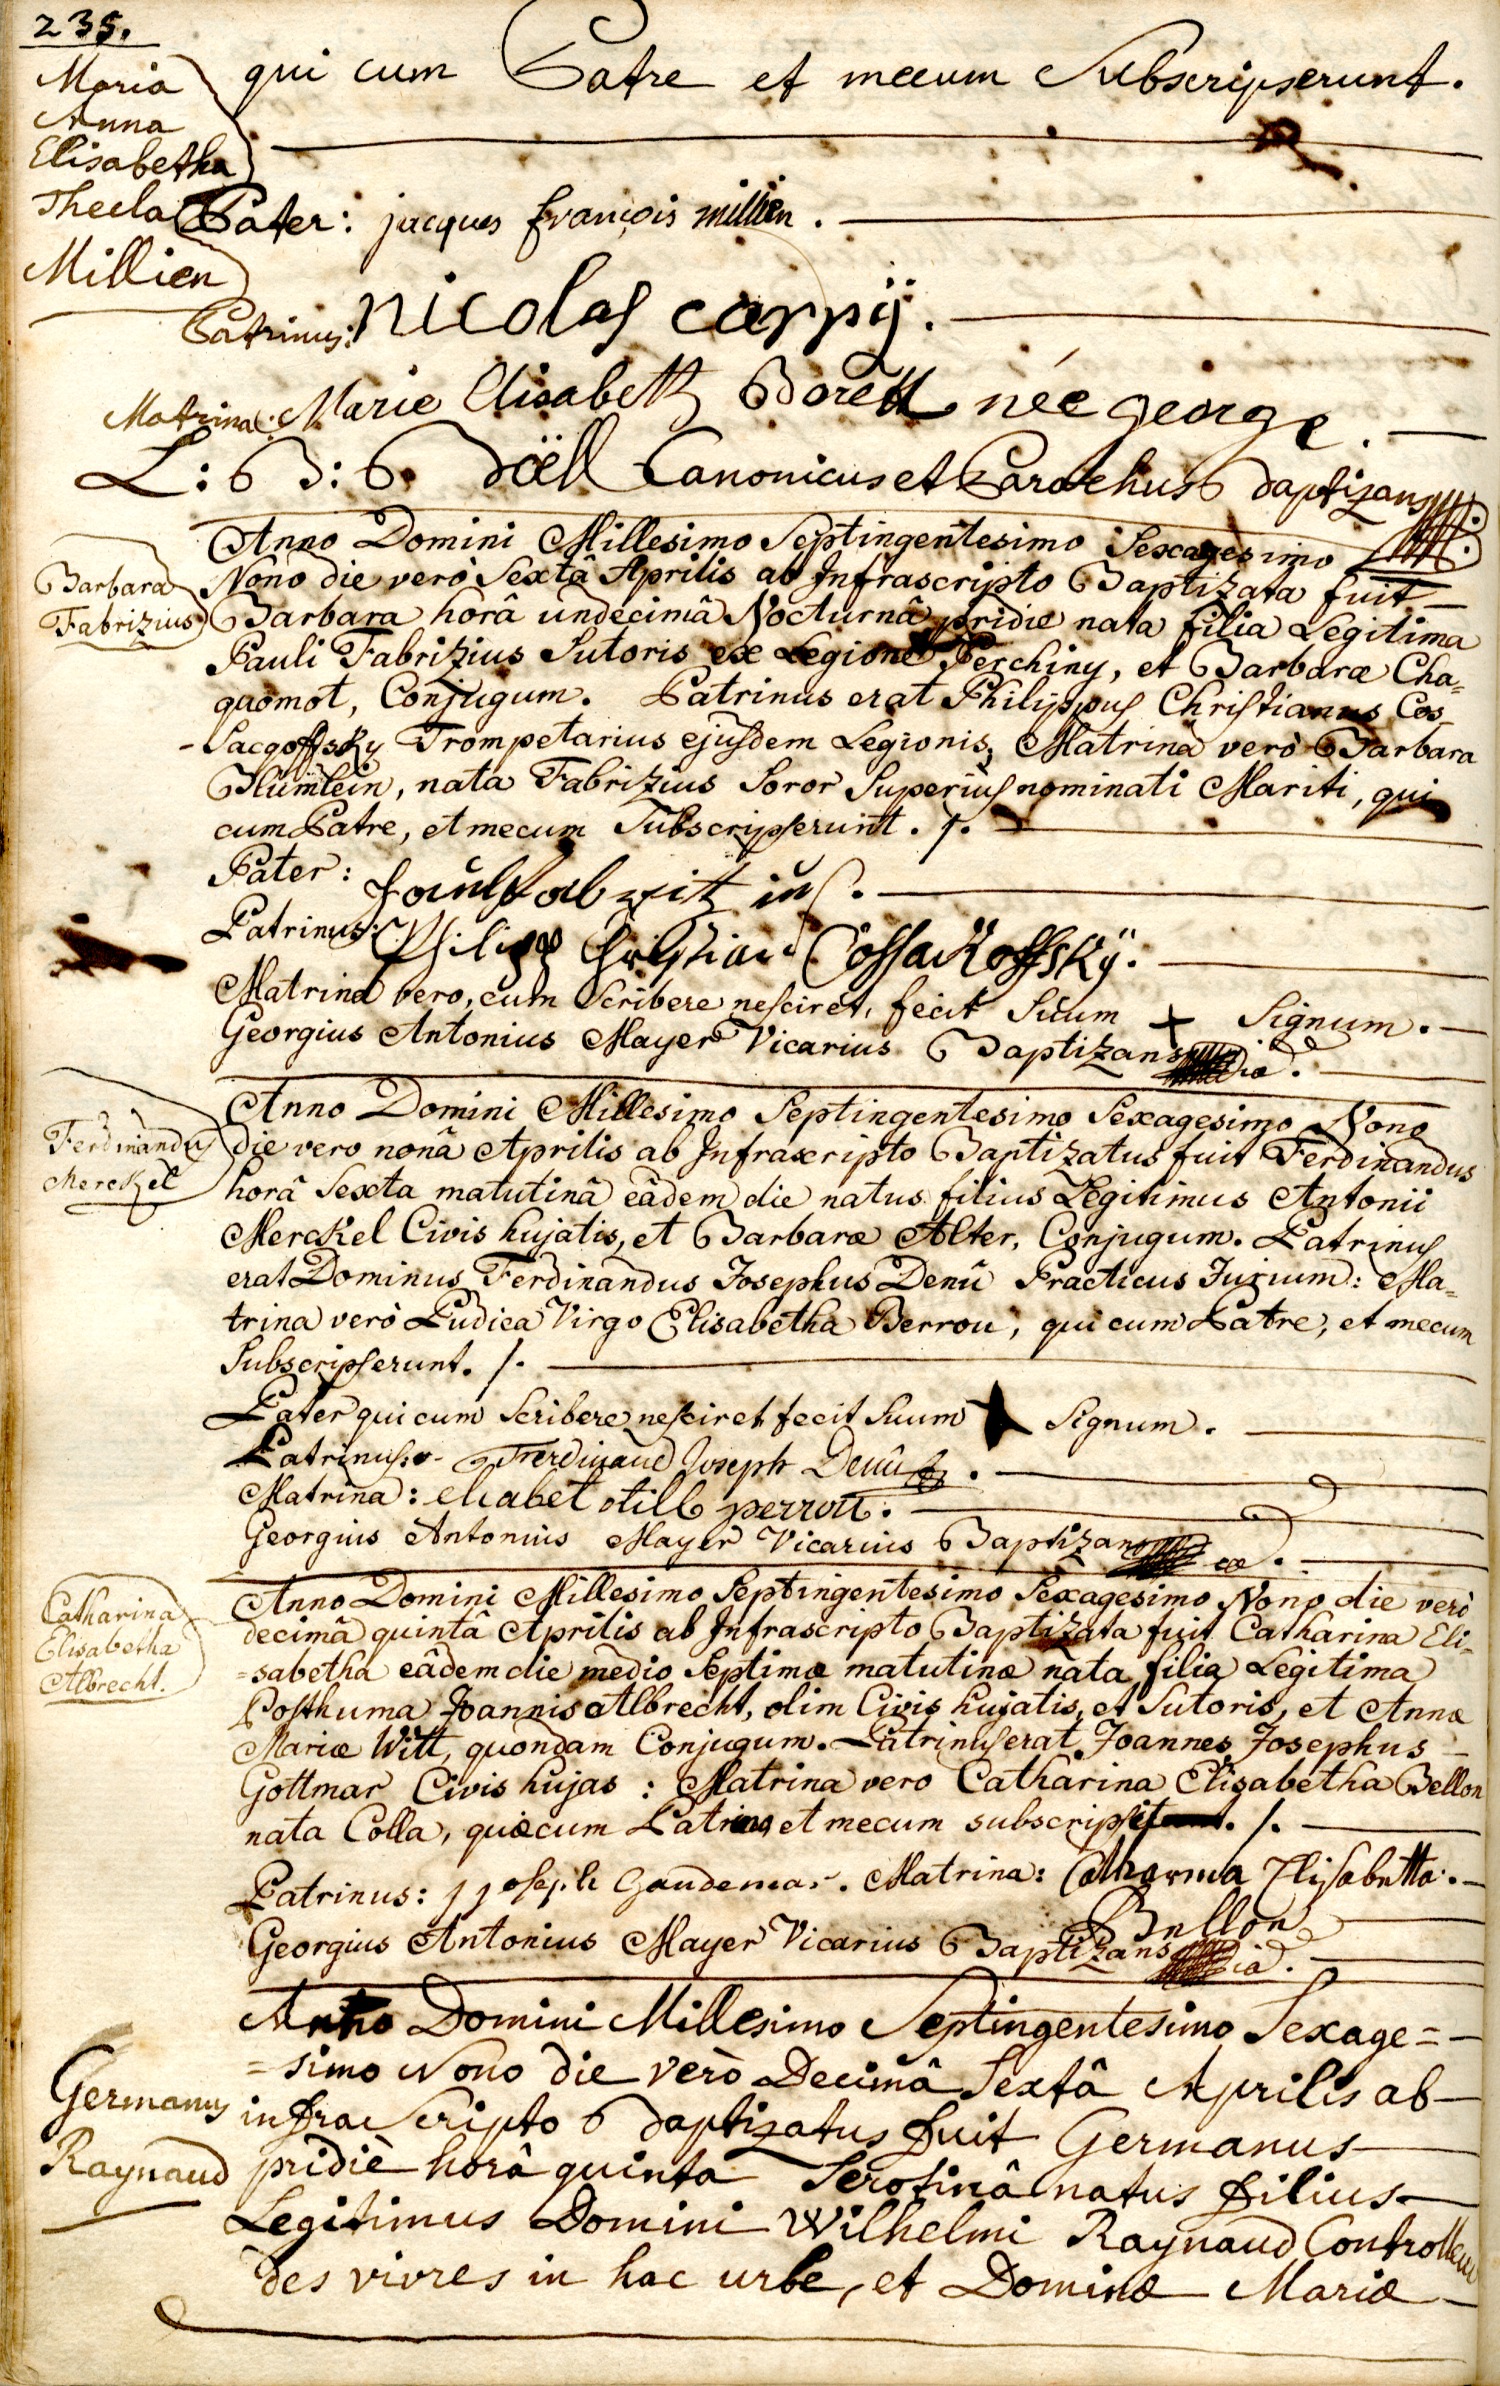 235.
Maria
Anna
Elisabetha
Thecla
Millien
qui cum Patre et mecum Subscripserunt.
Pater: jacques françois millien.
Patrinus: nicolas carpij.
Matrina: Marie Elisabeth Borell née george.
L: B: B. Döll Canonicus et Parochus baptizans
Barbara
Fabrizius
Anno Domini Millesimo Septingentesimo Sexagesimo
Nono die verò Sextâ Aprilis ab Infrascripto Baptizata fuit
Barbara horâ undecimâ Nocturnâ pridie nata filia Legitima
Pauli Fabrizius Sutoris ex Legione Berchiny, et Barbaræ Cha=
quomot, Conjugum. Patrinus erat Philippus Christianus Cos-
-Sacgoffsky Trompetarius ejusdem Legionis, Matrina verò Barbara
Blümlein, nata Fabrizius Soror Superius nominati Mariti, qui
cum Patre, et mecum Subscripserunt. /.
Pater: Paul fabritzius.
Patrinus: Philipp Christian Cossackoffsky.
Matrina vero, cum Scribere nesciret, fecit Suum + Signum.
Georgius Antonius Mayer Vicarius Baptizans
Ferdinandus
Merckel
Anno Domini Millesimo Septingentesimo Sexagesimo Nono
die vero nonâ Aprilis ab Infrascripto Baptizatus fuit Ferdinandus
horâ Sexta matutinâ eâdem die natus filius Legitimus Antonii
Merckel Civis hujatis, et Barbaræ Alter, Conjugum. Patrinus
erat Dominus Ferdinandus Josephus Denû Practicus Jurium: Ma=
trina verò Pudica Virgo Elisabetha Berrou, qui cum Patre, et mecum
Subscripserunt. /.
Pater qui cum Scribere nesciret fecit Suum + Signum.
Patrinus: Ferdinand Joseph Denû.
Matrina: eliabet otill perrou.
Georgius Antonius Mayer Vicarius Baptizans
Catharina
Elisabetha
Albrecht.
Anno Domini Millesimo Septingentesimo Sexagesimo Nono die verò
decimâ quintâ Aprilis ab Infrascripto Baptizata fuit Catharina Eli-
=sabetha eâdem die medio Septimæ matutinæ nata filia Legitima
Posthuma Joannis Albrecht, olim Civis hujatis, et Sutoris, et Annæ
Mariæ Witt, quondam Conjugum. Patrinus erat Joannes Josephus
Gottmar Civis hujas: Matrina vero Catharina Elisabetha Bellon
nata Colla, quæ cum Patrino et mecum subscripsit. /.
Patrinus: joseph Gaudemar. Matrina: Catharina Elisabetta
Bellon
Georgius Antonius Mayer Vicarius Baptizans
Germanus
Raynaud
Anno Domini Millesimo Septingentesimo Sexage=
=simo Nono die verò Decimâ Sextâ Aprilis ab
infraScripto baptizatus fuit Germanus
pridiè horâ quinta Serotinâ natus filius
Legitimus Domini Wilhelmi Raynaud Controlleur
des vivres in hac urbe, et Dominæ Mariæ